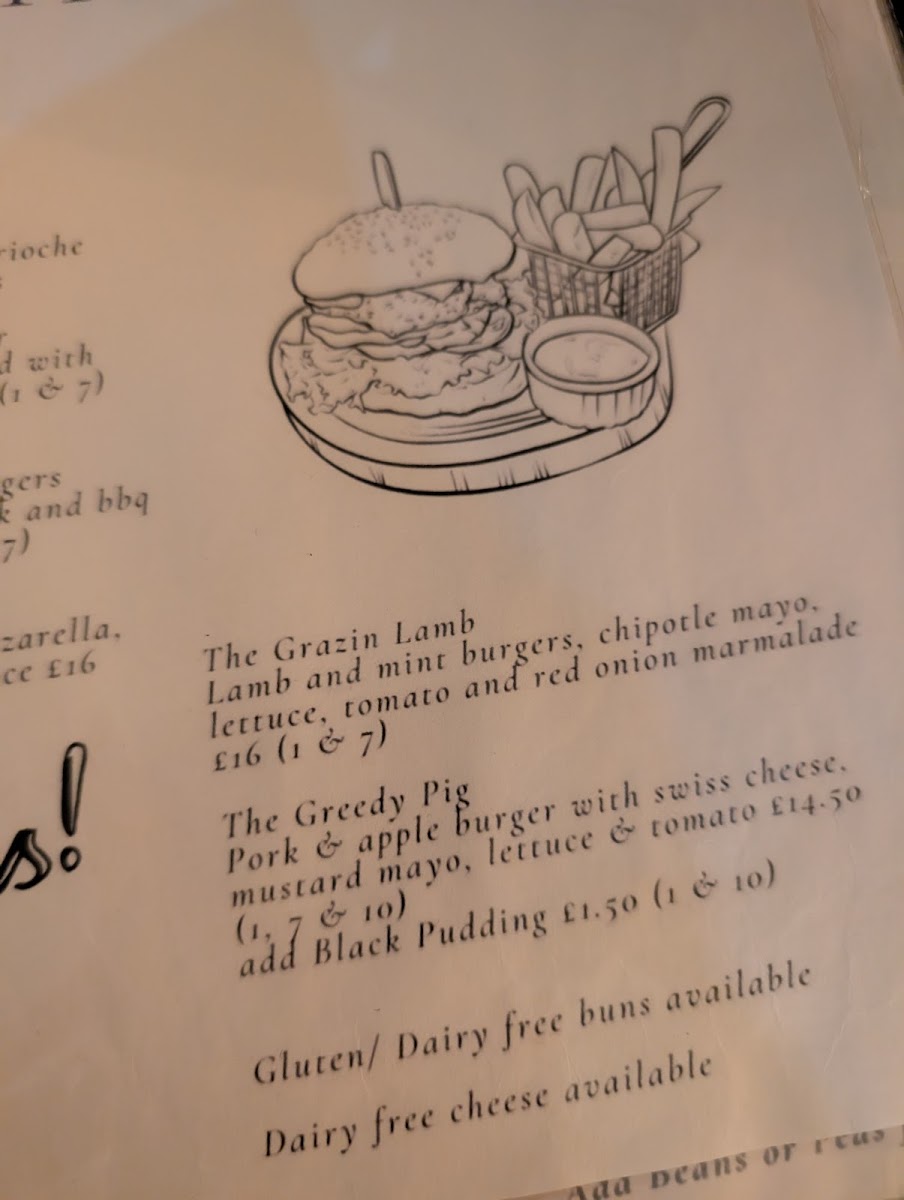 rioche
d with
(1 & 7)
gers
k and bbq
7)
zarella,
ce £16
s!
The Grazin Lamb
Lamb and mint burgers, chipotle mayo,
lettuce, tomato and red onion marmalade
£16 (1 & 7)
The Greedy Pig
Pork & apple burger with swiss cheese,
mustard mayo, lettuce & tomato £14.50
(1, 7 & 10)
add Black Pudding £1.50 (1 & 10)
Gluten/ Dairy free buns available
Dairy free cheese available
Add Beans or Peas